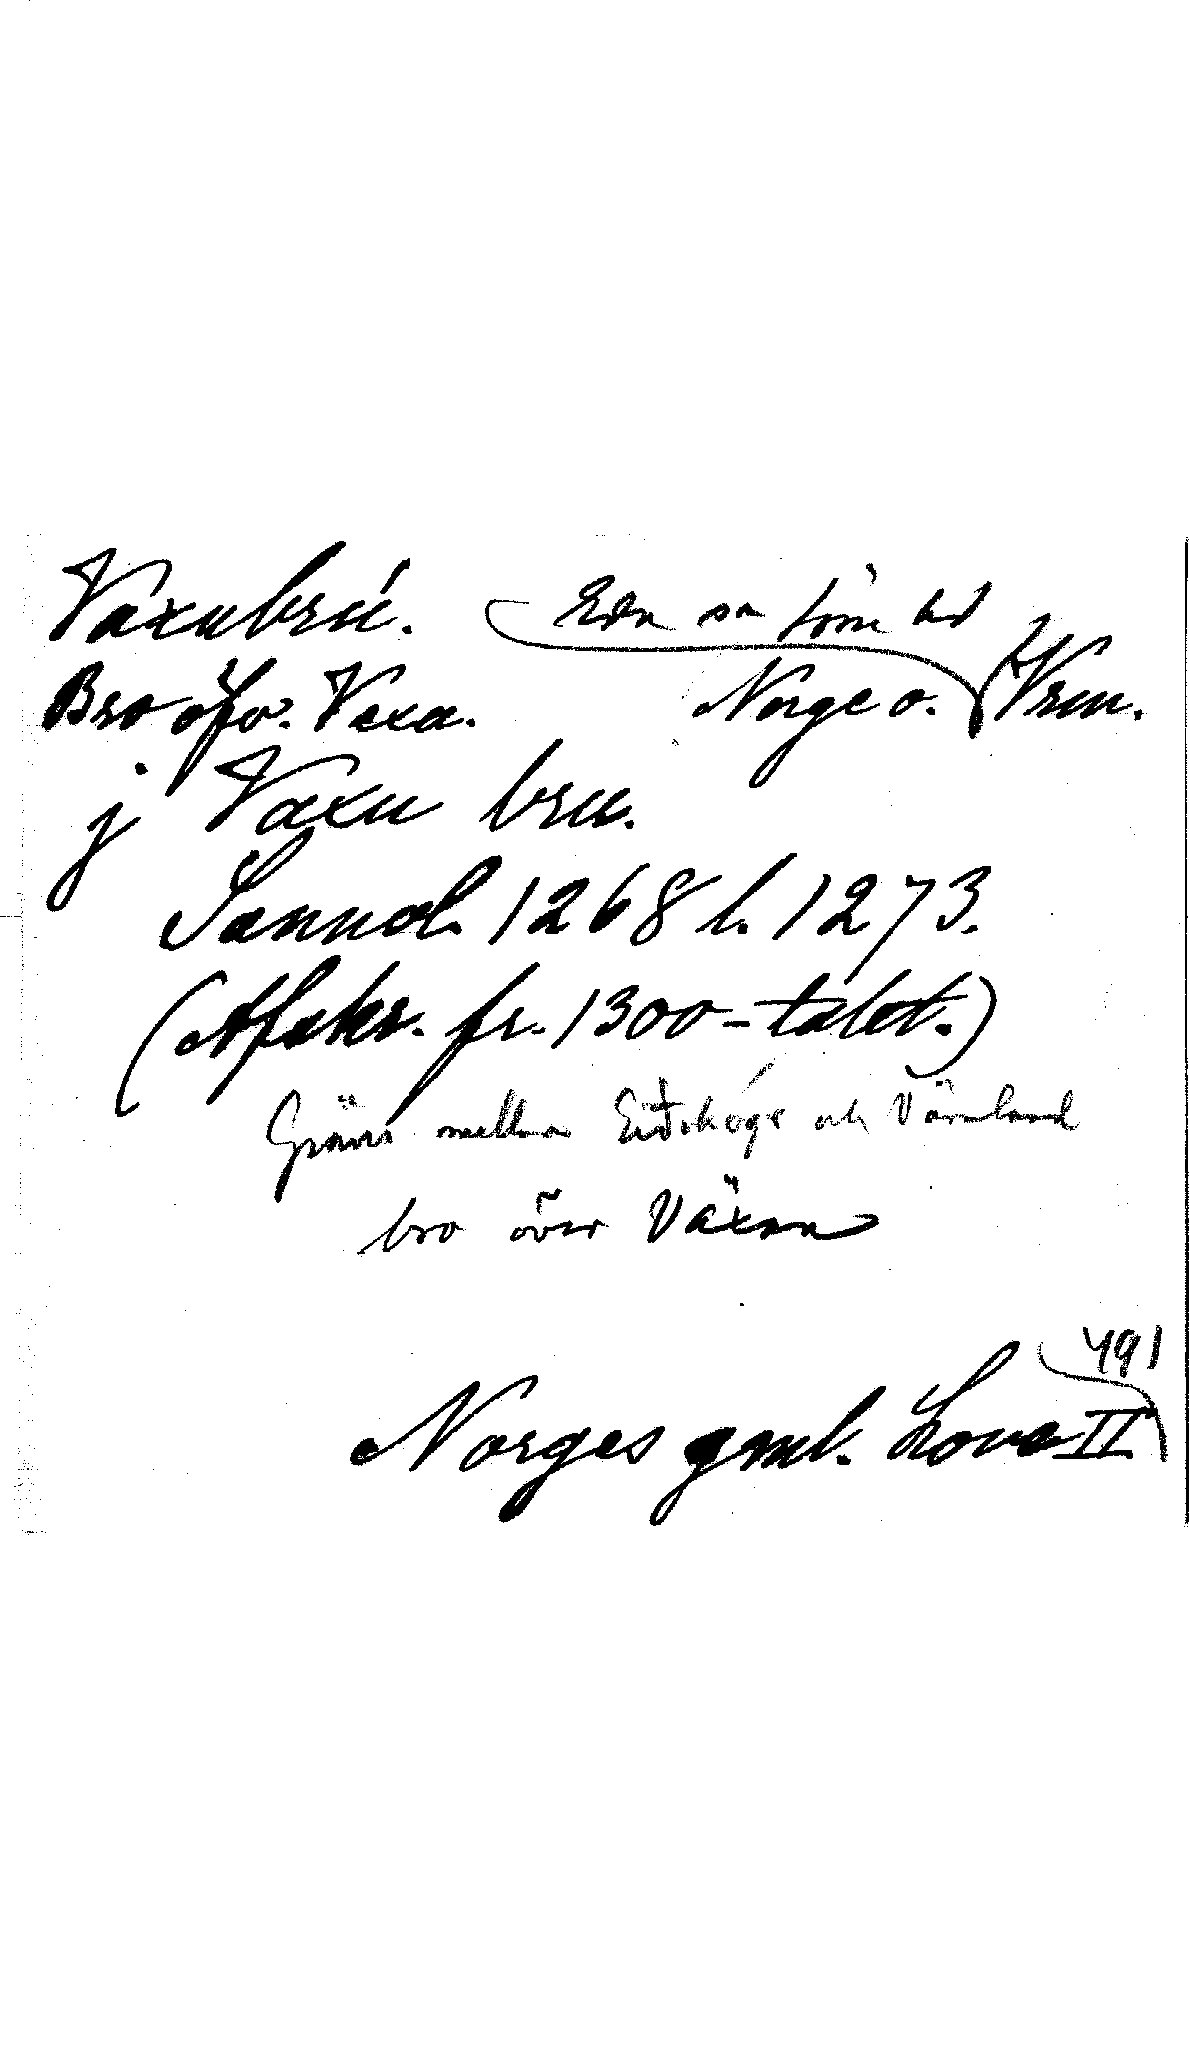 Vaxubrú. Eda sn Jösse hd
Bro öfv. Vaxa. Norge o. Vrm.
j Vaxu bru.
Sannol. 1268 l. 1273.
(Afskr. fr. 1300-talet.)
Gräns mellan Eiðskoge och Värmland
bro över Växan
491
Norges gml. Love II